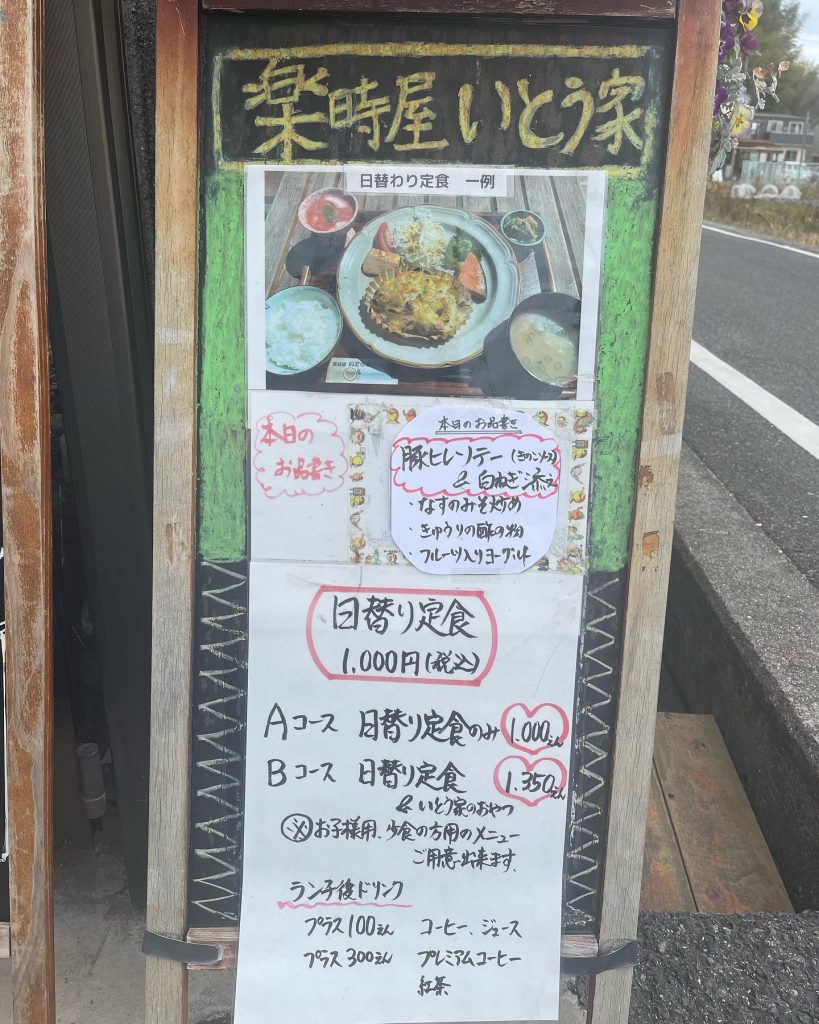 楽時屋 いとう家
日替わり定食 一例
本日の
お品書き
本日のお品書き
豚ヒレソテー(きのこソース)
& 白ねぎ添え
・なすのみそ炒め
・きゅうりの酢の物
・フルーツ入りヨーグルト
日替り定食
1,000円(税込)
Aコース 日替り定食のみ 1,000えん
Bコース 日替り定食 1,350えん
& いとう家のおやつ
※お子様用、少食の方用のメニュー
ご用意出来ます。
ランチ後ドリンク
プラス100えん コーヒー、ジュース
プラス300えん プレミアムコーヒー
紅茶